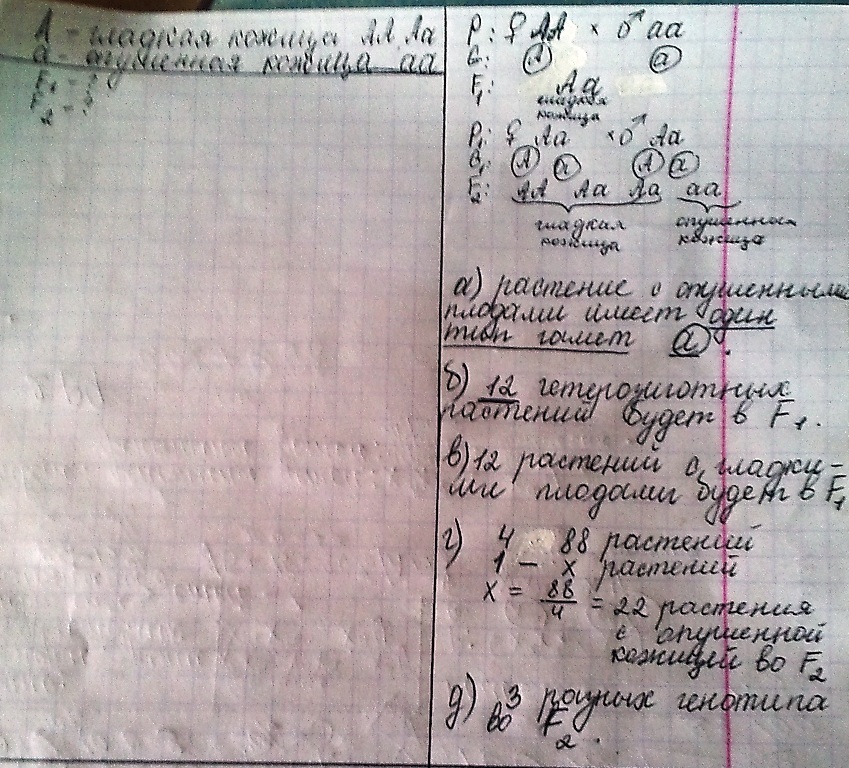 A - гладкая кожица AA, Aa
a - опушенная кожица aa
F₁ - ?
F₂ - ?
P: ♀ AA × ♂ aa
G: A a
F₁: Aa
гладкая
кожица
P₁: ♀ Aa × ♂ Aa
G₁: A a A a
F₂: AA Aa Aa aa
гладкая кожица
опушенная кожица
а) растение с опушенными
плодами имеет один
тип гамет a.
б) 12 гетерозиготных
растений будет в F₁.
в) 12 растений с гладки-
ми плодами будет в F₁
г) 4 88 растений
1 - x растений
x = 88/4 = 22 растения
с опушенной
кожицей во F₂
д) 3 разных генотипа
во F₂.